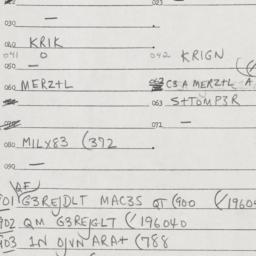 030 —
040 KRIK
041 0 042 KRIGN
050 —
060 MERZ+L 062 C3A MERZ+L (A
063 S+TOMP3R
072 —
080 MILX83 (372
090 —
AF
901 G3REJDLT MAC3S QT (900 (/1960
902 QM G3REJGLT (/196040
903 1N OJVN ARA+ (788